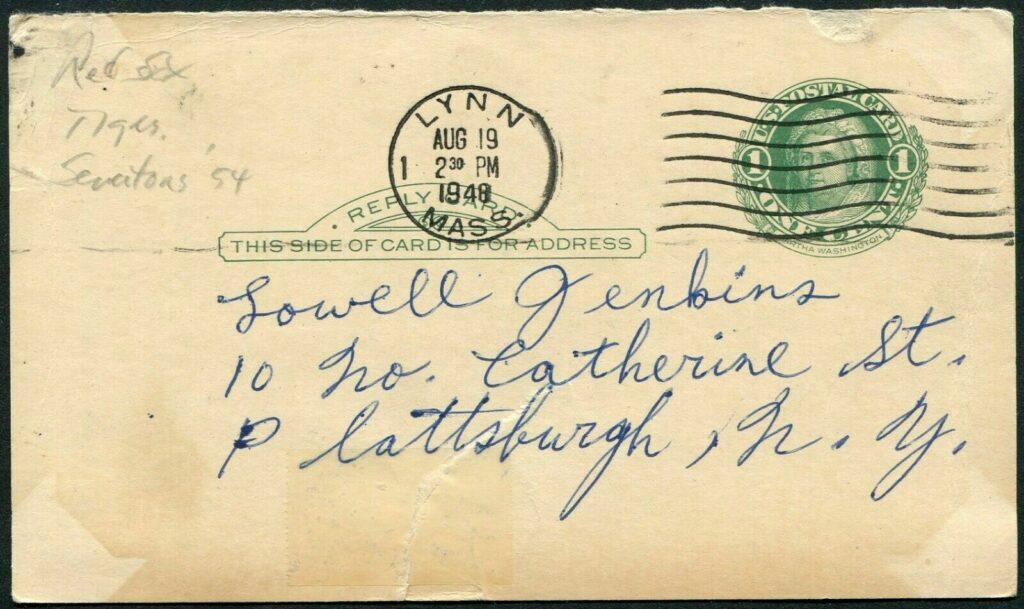 Red Sox
Tiges.
Senators 54
LYNN
AUG 19
1 2 30 PM
1948
MASS.
U.S. POSTAL CARD
1 1
ONE CENT
MARTHA WASHINGTON
REPLY CARD
THIS SIDE OF CARD IS FOR ADDRESS
Lowell Jenkins
10 No. Catherine St.
Plattsburgh, N. Y.